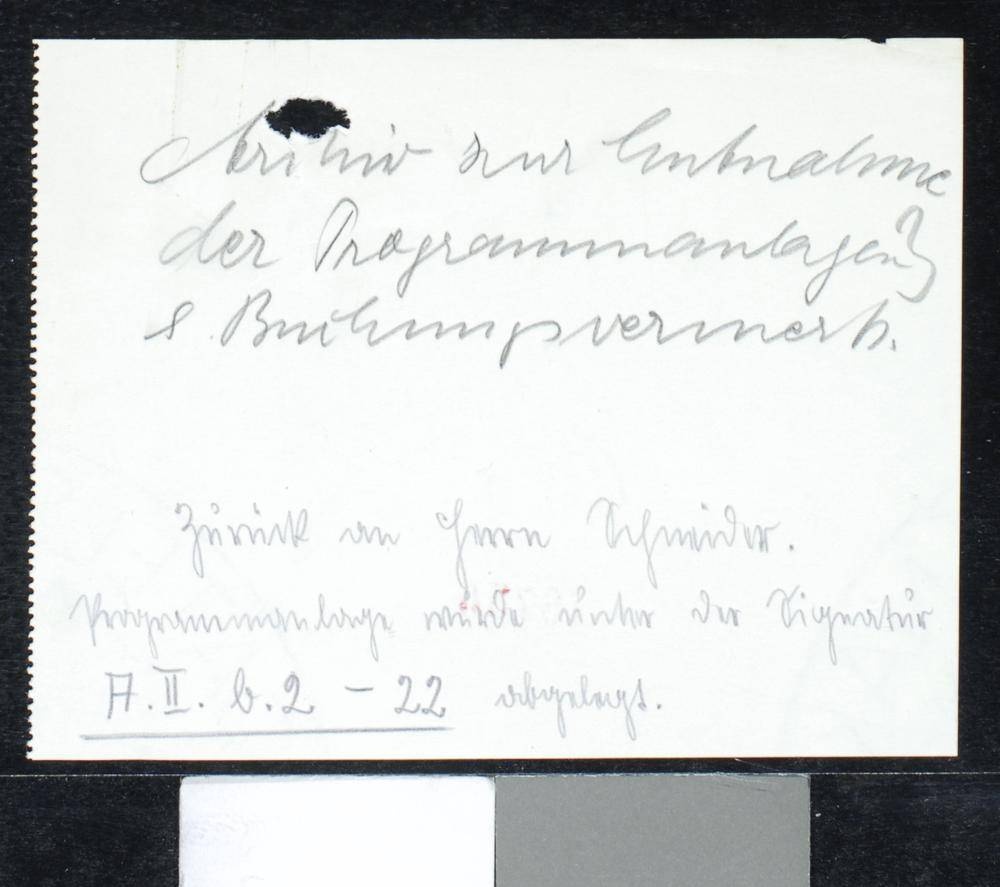 Archiv zur Entnahme
der Programmanlagen?
s. Buchungsvermerk.
Zurück an Herrn Schneider.
Programmanlage wurde unter der Signatur
A.II. b.2 – 22 abgelegt.